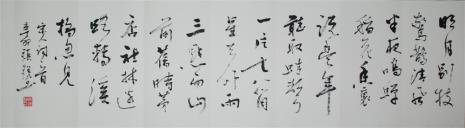 明月别枝
惊鹊清风
半夜鸣蝉
稻花香里
说丰年
听取蛙声
一片七八个
星天外雨
三点雨山
前旧时茅
店社林边
路转溪
桥忽见
宋词一首